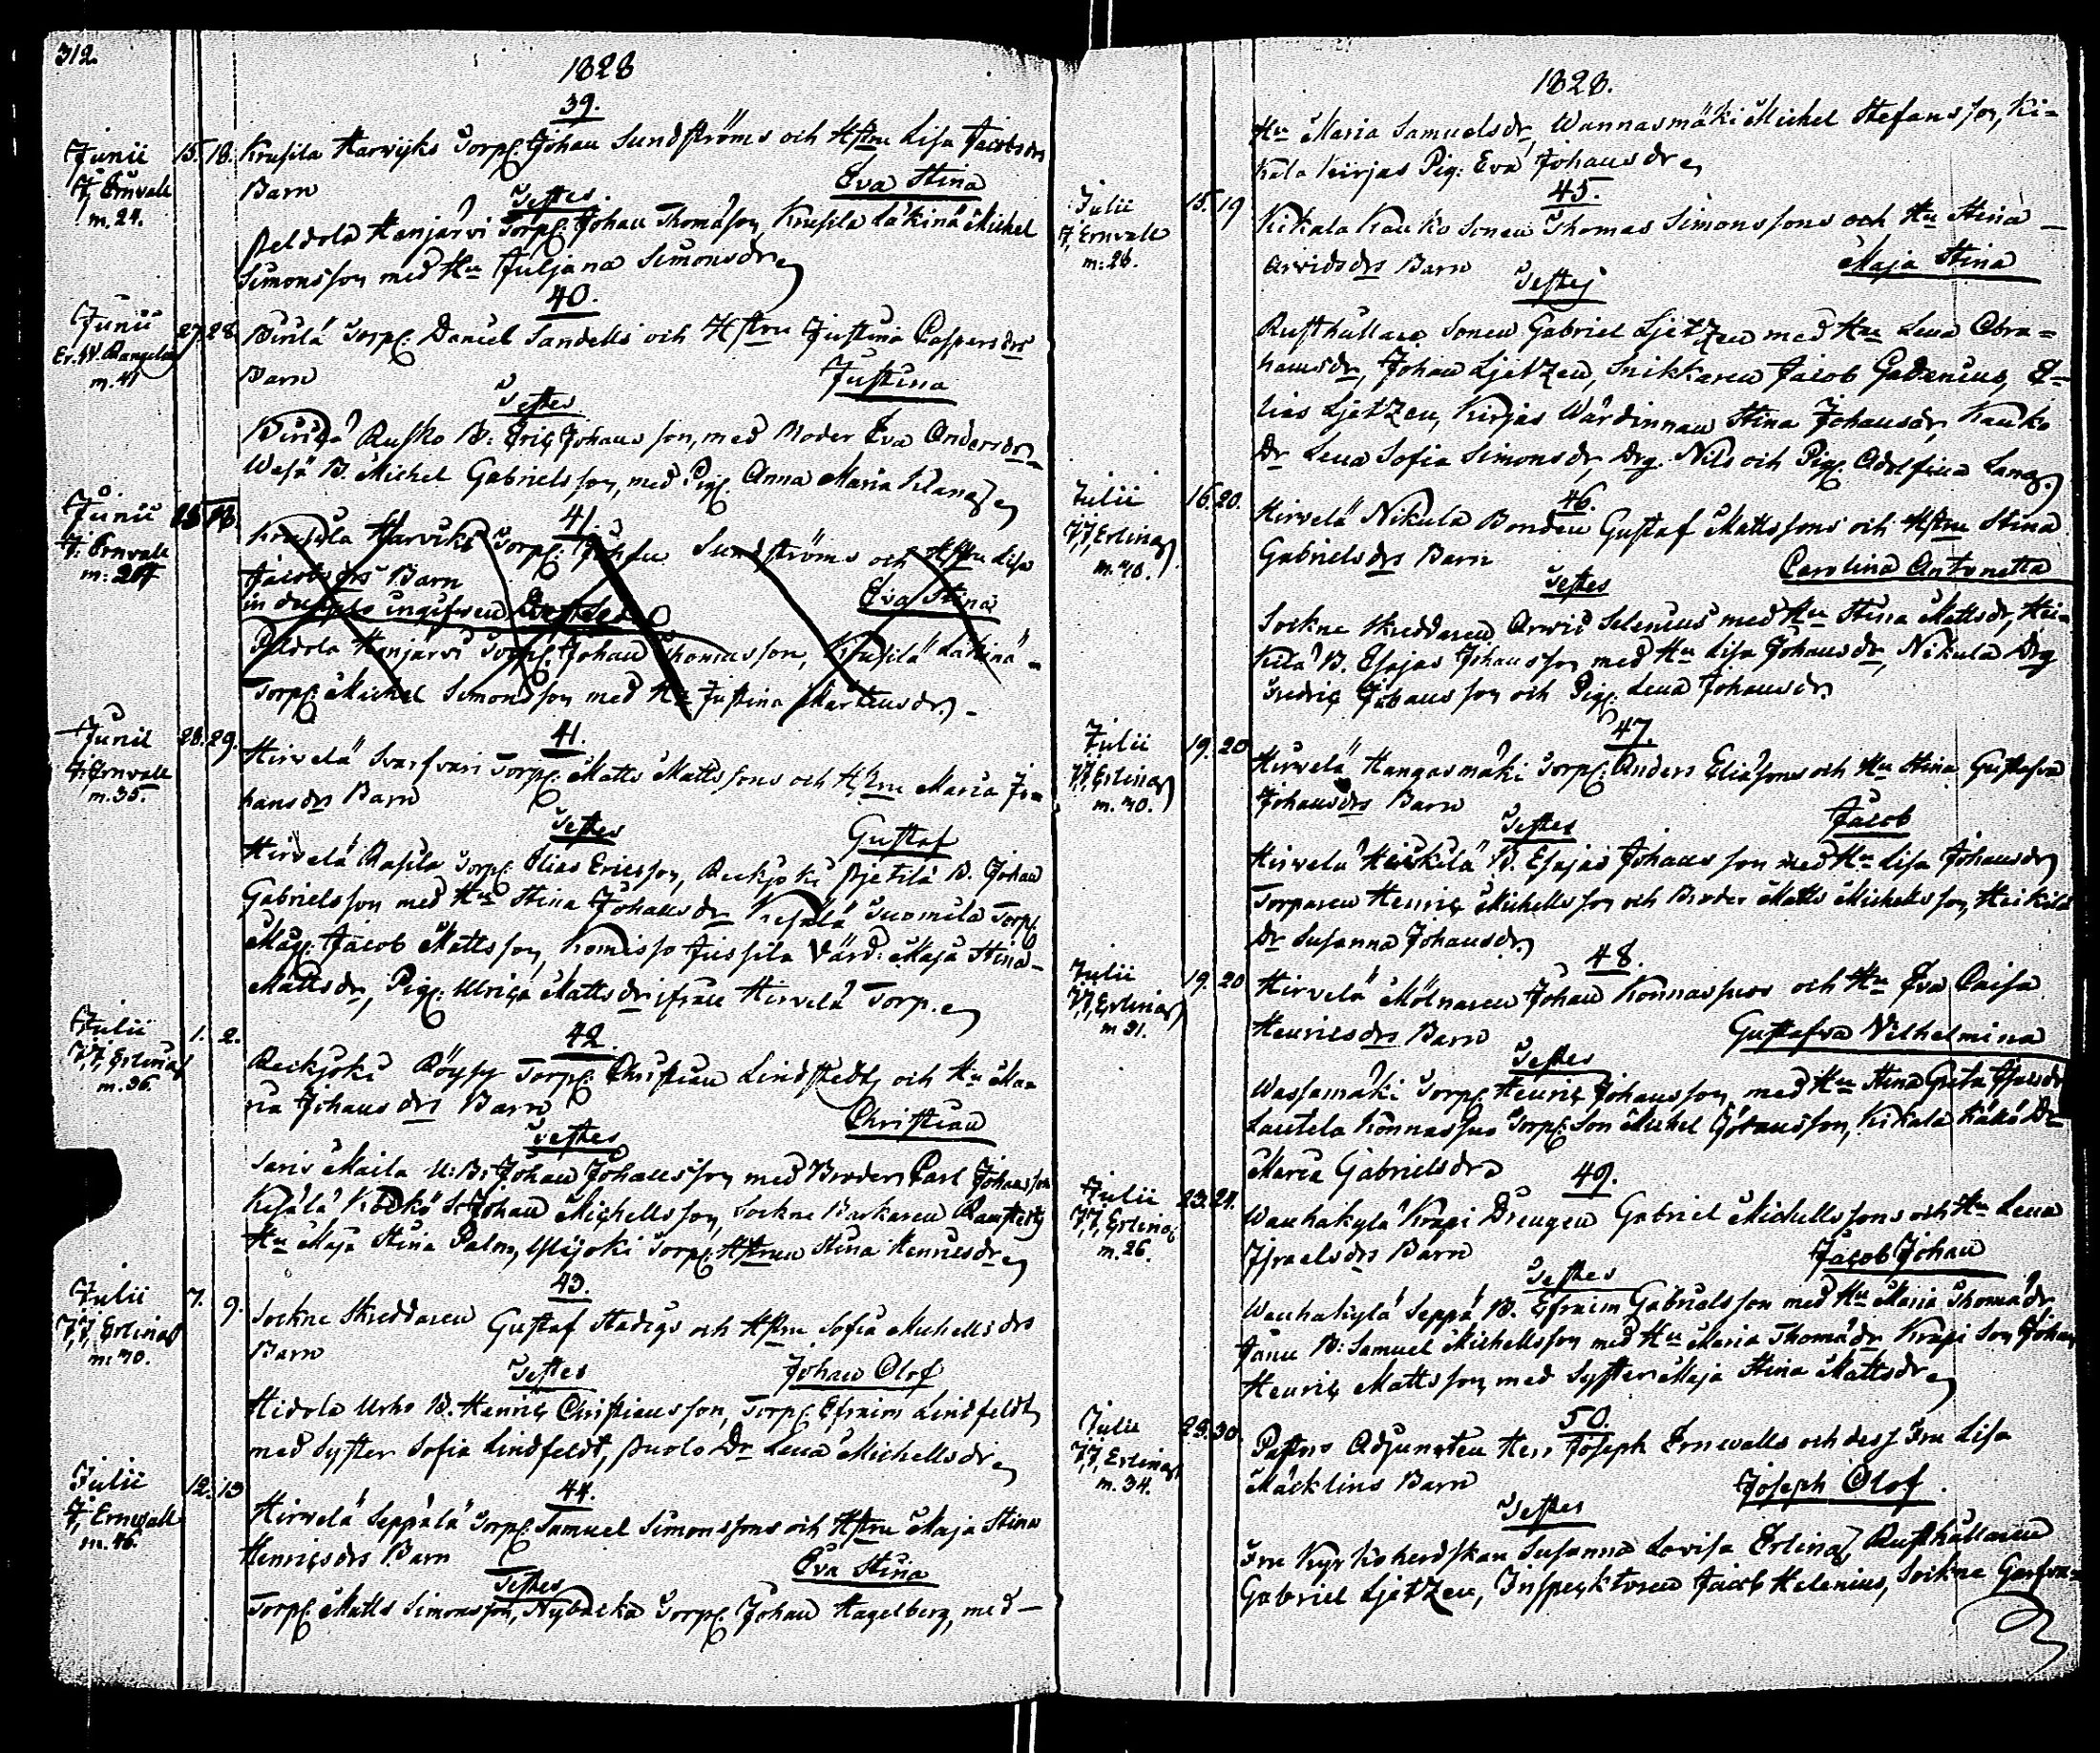 312.
1828
39.
Junii 15. 18. Krusila Harviks Torp: Johan Sundströms och Hstru Lisa Jacobsdrs
J. Ernvall Barn Eva Stina
m. 24. Testes.
Peldola Hanjärvi Torp: Johan Thomasson, Krusila Läkinä Michel
Simonsson med Hu Juljana Simonsdr
40.
Junii 27. 28 Torp: Daniel Sandells och Hstru Justina Caspersdrs
m. 41 Barn Justina
Testes
Rusko B: Eric Johansson, med Moder Eva Andersdr
B. Michel Gabrielsson, med Pig: Anna Maria
41.
Junii Krusila Harviks Torp: Johan Sundströms och Hstru Lisa
J. Ernvall Jacobsdrs Barn Eva Stina
m: 24 in duplo
Peldola Hanjärvi Torp: Johan Thomasson, Krusilä Läkinä
Torp: Michel Simonsson med Hu Justina Mårtensdr
41.
Junii 28. 29. Hirvelä Torp: Matts Mattssons och Hstru Maria Jo=
J. Ernvall hansdrs Barn
m. 35. Testes Gustaf
Hirvelä Rasila Torp: Elias Ericsson, Reckjoki B. Johan
Gabrielsson med Hu Stina Johansdr Suomela Torp:
Måg: Jacob Mattsson, Komisso Jussila Värd: Maja Stina
Mattsdr, Pig: Ulrica Mattsdr ifrån Hirvelä Torp.
42.
Julii 1. 2. Reckjoki Torp: Christian Lindstedts och Hu Ma=
J. J. Erling ria Johansdrs Barn
m. 36. Christian
Testes
Saris Maila U: B: Johan Johansson med Broder Carl Johansson
Johan Michellsson, Sockne
Hu Maja Stina Palm, Torp: Hstrun Stina Henricsdr
43.
Julii 7. 9. Sockne Skreddaren Gustaf Stadigs och Hstru Sofia Michellsdrs
J. J. Erling Barn
m. 40. Testes Johan Olof
Hidola Urho B. Henric Christiansson, Torp: Efraim Lindfeldt
med Syster Sofia Lindfeldt, Dr Lena Michellsdr
44.
Julii 12. 13 Hirvelä Seppälä Torp: Samuel Simonssons och Hstru Maja Stina
J. Ernvall Henricsdrs Barn Eva Stina
Testes
Torp: Matts Simonsson, Nybacka Torp: Johan Hagelberg, med —
1828.
Hu Maria Samuelsdr, Wannasmäki Michel Stefansson, Ki=
kala Kirjas Pig: Eva Johansdr
45.
Julii 15. 19 Kikala Kauko Sonen Thomas Simonssons och Hu Stina
J. Ernvall Arvidsdrs Barn Maja Stina
m. 26. Testes
Rusthållare Sonen Gabriel Ljetzen med Hu Lena Abra=
hamsdr, Johan Ljetzen, Snikkaren Jacob Gadenius, E=
lias Ljetzen, Kirjas Wärdinnan Stina Johansdr, Kauko
Dr Lena Sofia Simonsdr, Drg. Nils och Pig: Adolfina Lang.
46.
Julii 16. 20. Hirvelä Nikula Bonden Gustaf Mattssons och Hstru Stina
J. J. Erling Gabrielsdrs Barn Carolina Antonetta
m. 40. Testes
Sockne Skreddaren Arvid Selenius med Hu Stina Mattsdr, Hei=
kilä B. Esajas Johansson med Hu Lisa Johansdr, Nikula Drg
Fredric Johansson och Pig: Lena Johansdr
47.
Julii 19. 20 Hirvelä Hangasmäki Torp: Anders Eliassons och Hu Stina Gustafva
J. J. Erling Johansdrs Barn Jacob
m. 40. Testes
Hirvelä Heikkilä B. Esajas Johansson med Hu Lisa Johansdr
Torparen Henric Michellsson och Broder Matts Michellsson, Heikilä
Dr Susanna Johansdr
48.
Julii 19. 20 Hirvelä Mölnaren Johan Konnassuos och Hu Eva Caisa
J. J. Erling Henricsdrs Barn Gustafva Vilhelmina
m 31. Testes
Wassamäki Torp: Henric Johansson, med Hu Stina Greta
Lautela Konnassuo Torp: Son Michel Johansson, Kikala Dr
Maria Gabrielsdr
49.
Julii 23. 24. Wanhakylä Krapi Drengen Gabriel Michellssons och Hu Lena
J. J. Erling Israelsdrs Barn Jacob Johan
m. 26. Testes
Wanhakylä Seppä B. Efraim Gabrielsson med Hu Maria Thomädr
Janu B: Samuel Michellsson med Hu Maria Thomädr Krapi Son Johan
Henric Mattsson, med Syster Maja Stina Mattsdr
50.
Julii 29. 30. Pastors Adjuncten Herr Joseph Ernvalls och dess Fru Lisa
J. J. Erling Mäcklins Barn Joseph Olof.
m. 34. Testes
Fru Kyrkoherdskan Susanna Lovisa Erling, Rusthållaren
Gabriel Ljetzen, Inspecktoren Jacob Helenius, Sockne